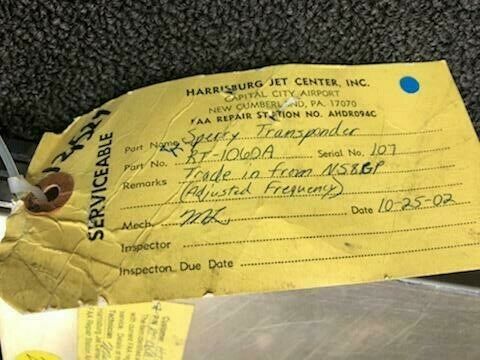 HARRISBURG JET CENTER, INC.
CAPITAL CITY AIRPORT
NEW CUMBERLAND, PA. 17070
FAA REPAIR STATION NO. AHDR094C
SERVICEABLE
Part Name Sperry Transponder
Part No. RT-1060A Serial No. 107
Remarks Trade in from N58GP
(Adjusted Frequency)
Mech. Date 10-25-02
Inspector
Inspecton Due Date